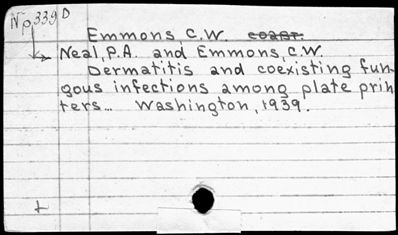 Np339D
Emmons C.W. coaut.
Neal, P.A. and Emmons, C.W.
Dermatitis and coexisting fun-
gous infections among plate prin
ters... Washington, 1939.